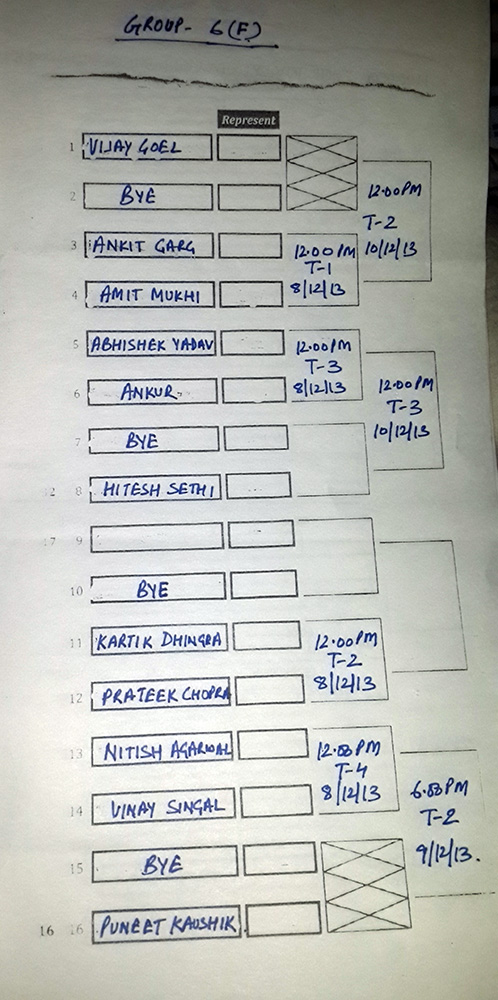 GROUP- 6(F)
Represent
1 VIJAY GOEL
2 BYE
12:00 PM
T-2
10/12/13
3 ANKIT GARG
4 AMIT MUKHI
12:00 PM
T-1
8/12/13
5 ABHISHEK YADAV
6 ANKUR
12:00 PM
T-3
8/12/13
12:00 PM
T-3
10/12/13
7 BYE
8 HITESH SETHI
9
10 BYE
11 KARTIK DHINGRA
12 PRATEEK CHOPRA
12:00 PM
T-2
8/12/13
13 NITISH AGARWAL
14 VINAY SINGAL
T-4
8/12/13
T-2
9/12/13.
15 BYE
16 16 PUNEET KAUSHIK